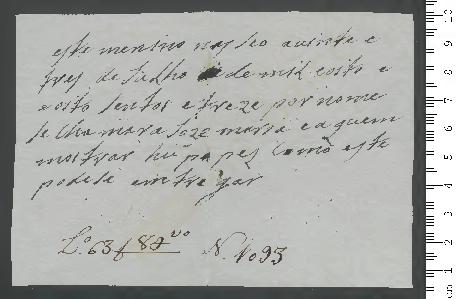 este menino nasseo avinte e
tres de Julho de mil eoito e
eoito sentos e treze por nome
se chamara Joze maria e aquem
mostrar hũ papel Como este
podese emtregar
L.º 63 f 84 vº N. 1093